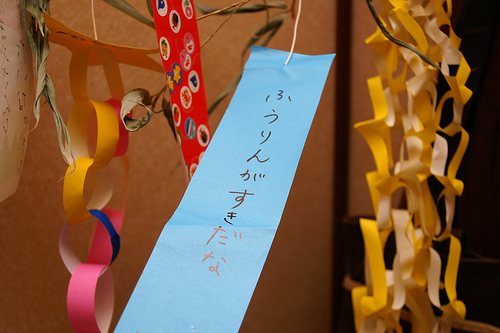 ふうりんがすきだな